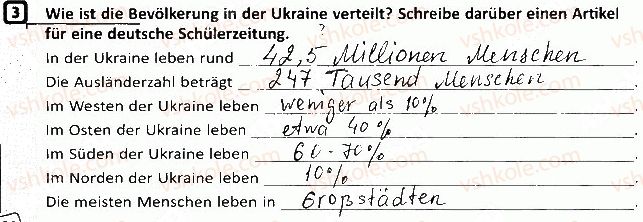 3 Wie ist die Bevölkerung in der Ukraine verteilt? Schreibe darüber einen Artikel
für eine deutsche Schülerzeitung. ?
In der Ukraine leben rund 42,5 Millionen Menschen
Die Ausländerzahl beträgt 247 Tausend Menschen
Im Westen der Ukraine leben weniger als 10%
Im Osten der Ukraine leben etwa 40%
Im Süden der Ukraine leben 60-70%
Im Norden der Ukraine leben 10%
Die meisten Menschen leben in Großstädten